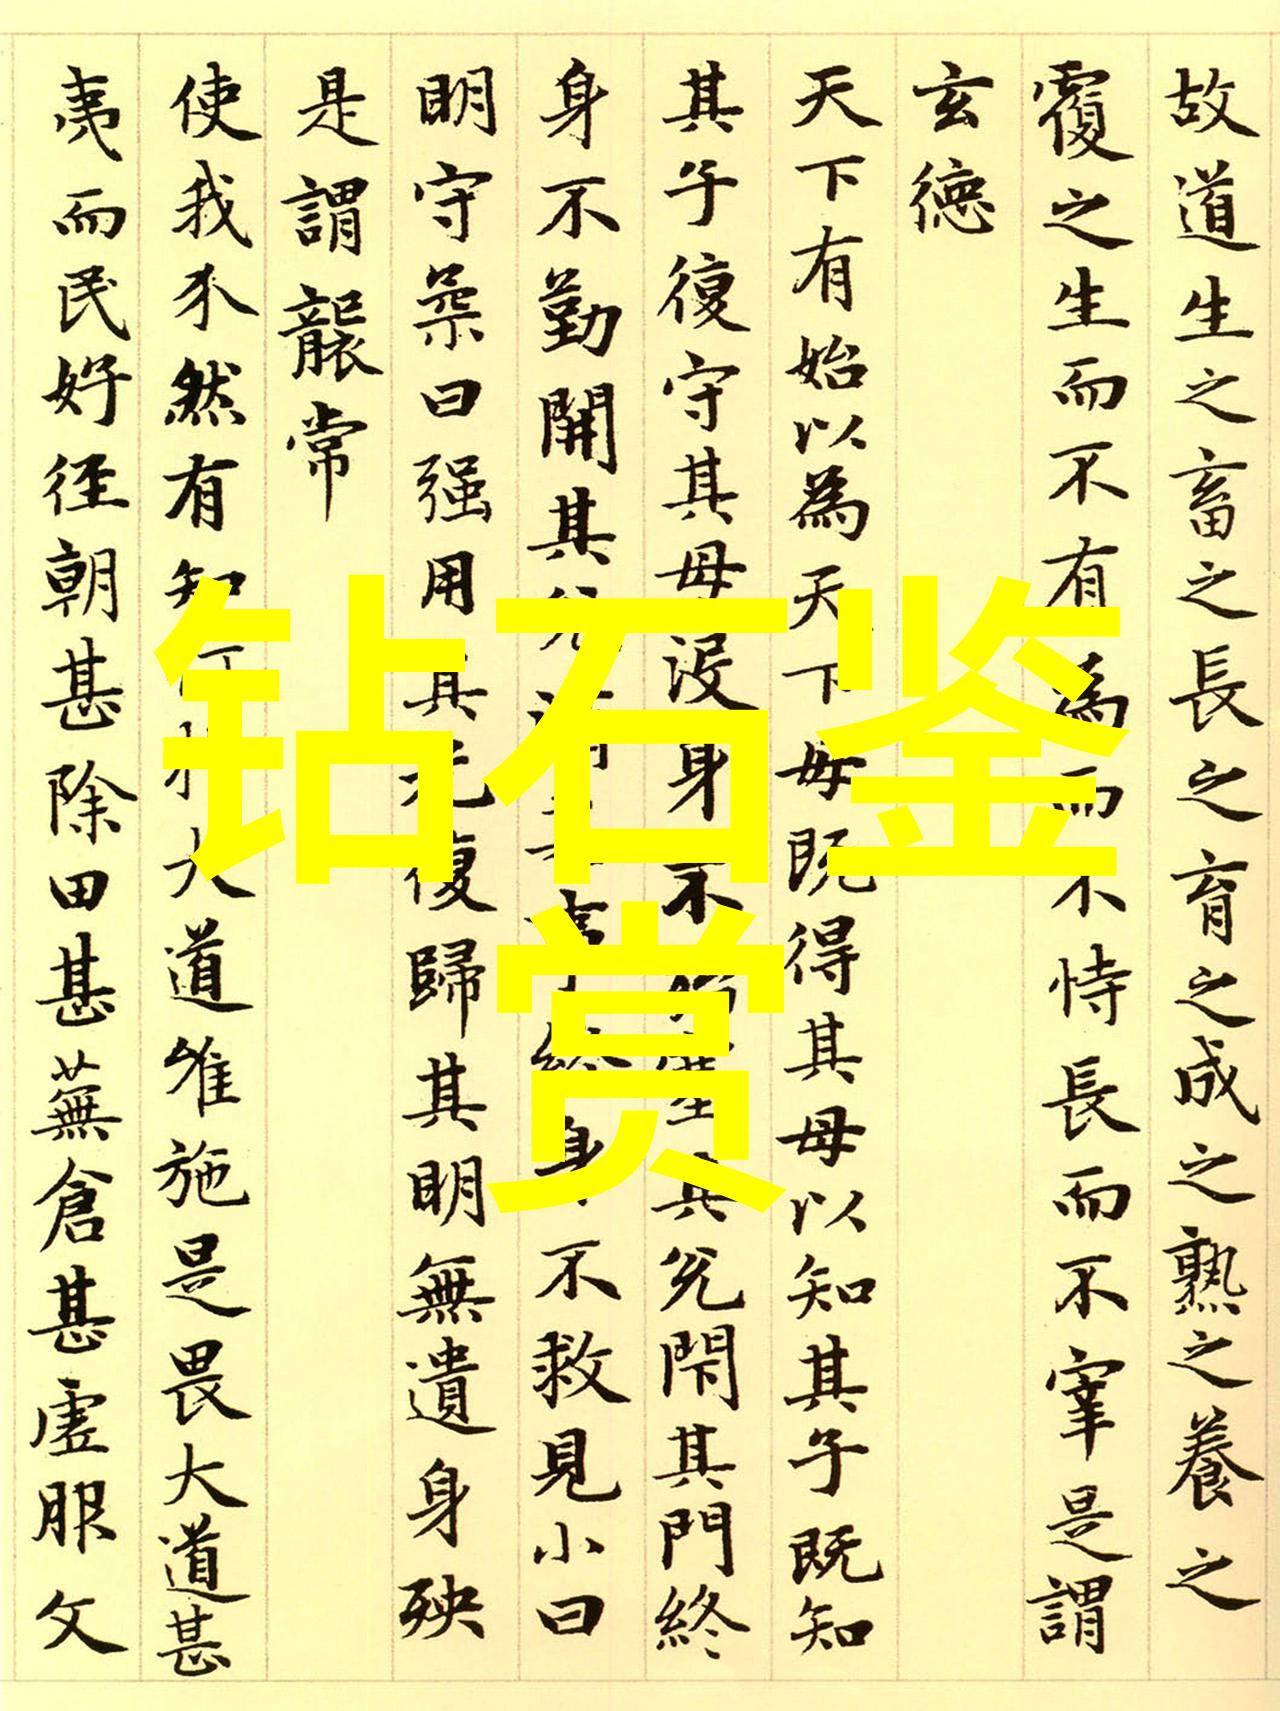 故道生之畜之長之育之成之熟之養之
覆之生而不有為而不恃長而不宰是謂
玄德
天下有始以為天下母既得其母以知其子既知
其子復守其母没身不殆塞其兌閇其門終
身不勤開其兌濟其事終身不救見小曰
明守柔曰强用其光復歸其明無遺身殃
是謂襲常
使我介然有知行於大道唯施是畏大道甚
夷而民好徑朝甚除田甚蕪倉甚虛服文
钻石鉴
赏